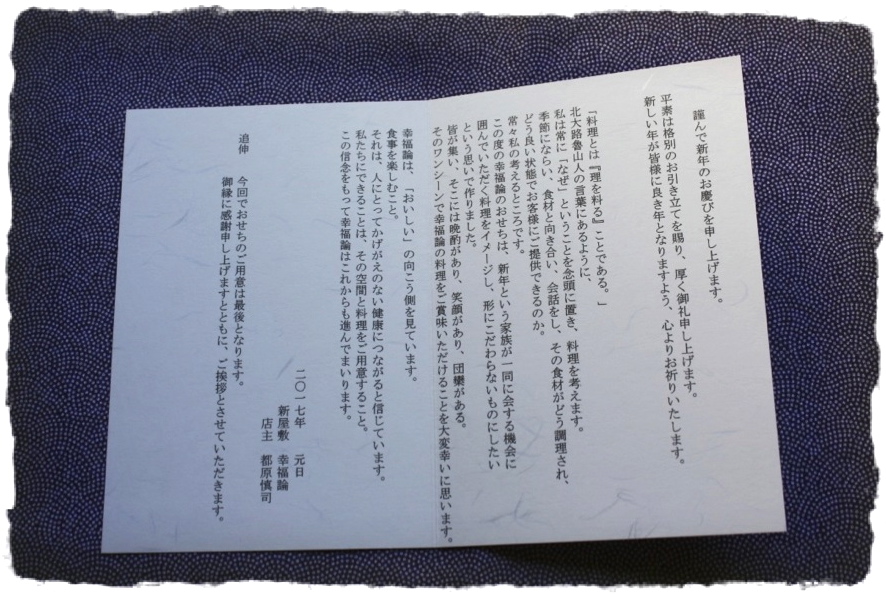 謹んで新年のお慶びを申し上げます。
平素は格別のお引き立てを賜り、厚く御礼申し上げます。
新しい年が皆様に良き年となりますよう、心よりお祈りいたします。
「料理とは『理を料る』ことである。」
北大路魯山人の言葉にあるように、
私は常に「なぜ」ということを念頭に置き、料理を考えます。
季節にならい、食材と向き合い、会話をし、その食材がどう調理され、
どう良い状態でお客様にご提供できるのか。
常々私の考えるところです。
この度の幸福論のおせちは、新年という家族が一同に会する機会に
囲んでいただく料理をイメージし、形にこだわらないものにしたい
という思いで作りました。
皆が集い、そこには晩酌があり、笑顔があり、団欒がある。
そのワンシーンで幸福論の料理をご賞味いただけることを大変幸いに思います。
幸福論は、「おいしい」の向こう側を見ています。
食事を楽しむこと。
それは、人にとってかけがえのない健康につながると信じています。
私たちにできることは、その空間と料理をご用意すること。
この信念をもって幸福論はこれからも進んでまいります。
二〇一七年 元日
新屋敷 幸福論
店主 都原慎司
追伸 今回でおせちのご用意は最後となります。
御縁に感謝申し上げますとともに、ご挨拶とさせていただきます。